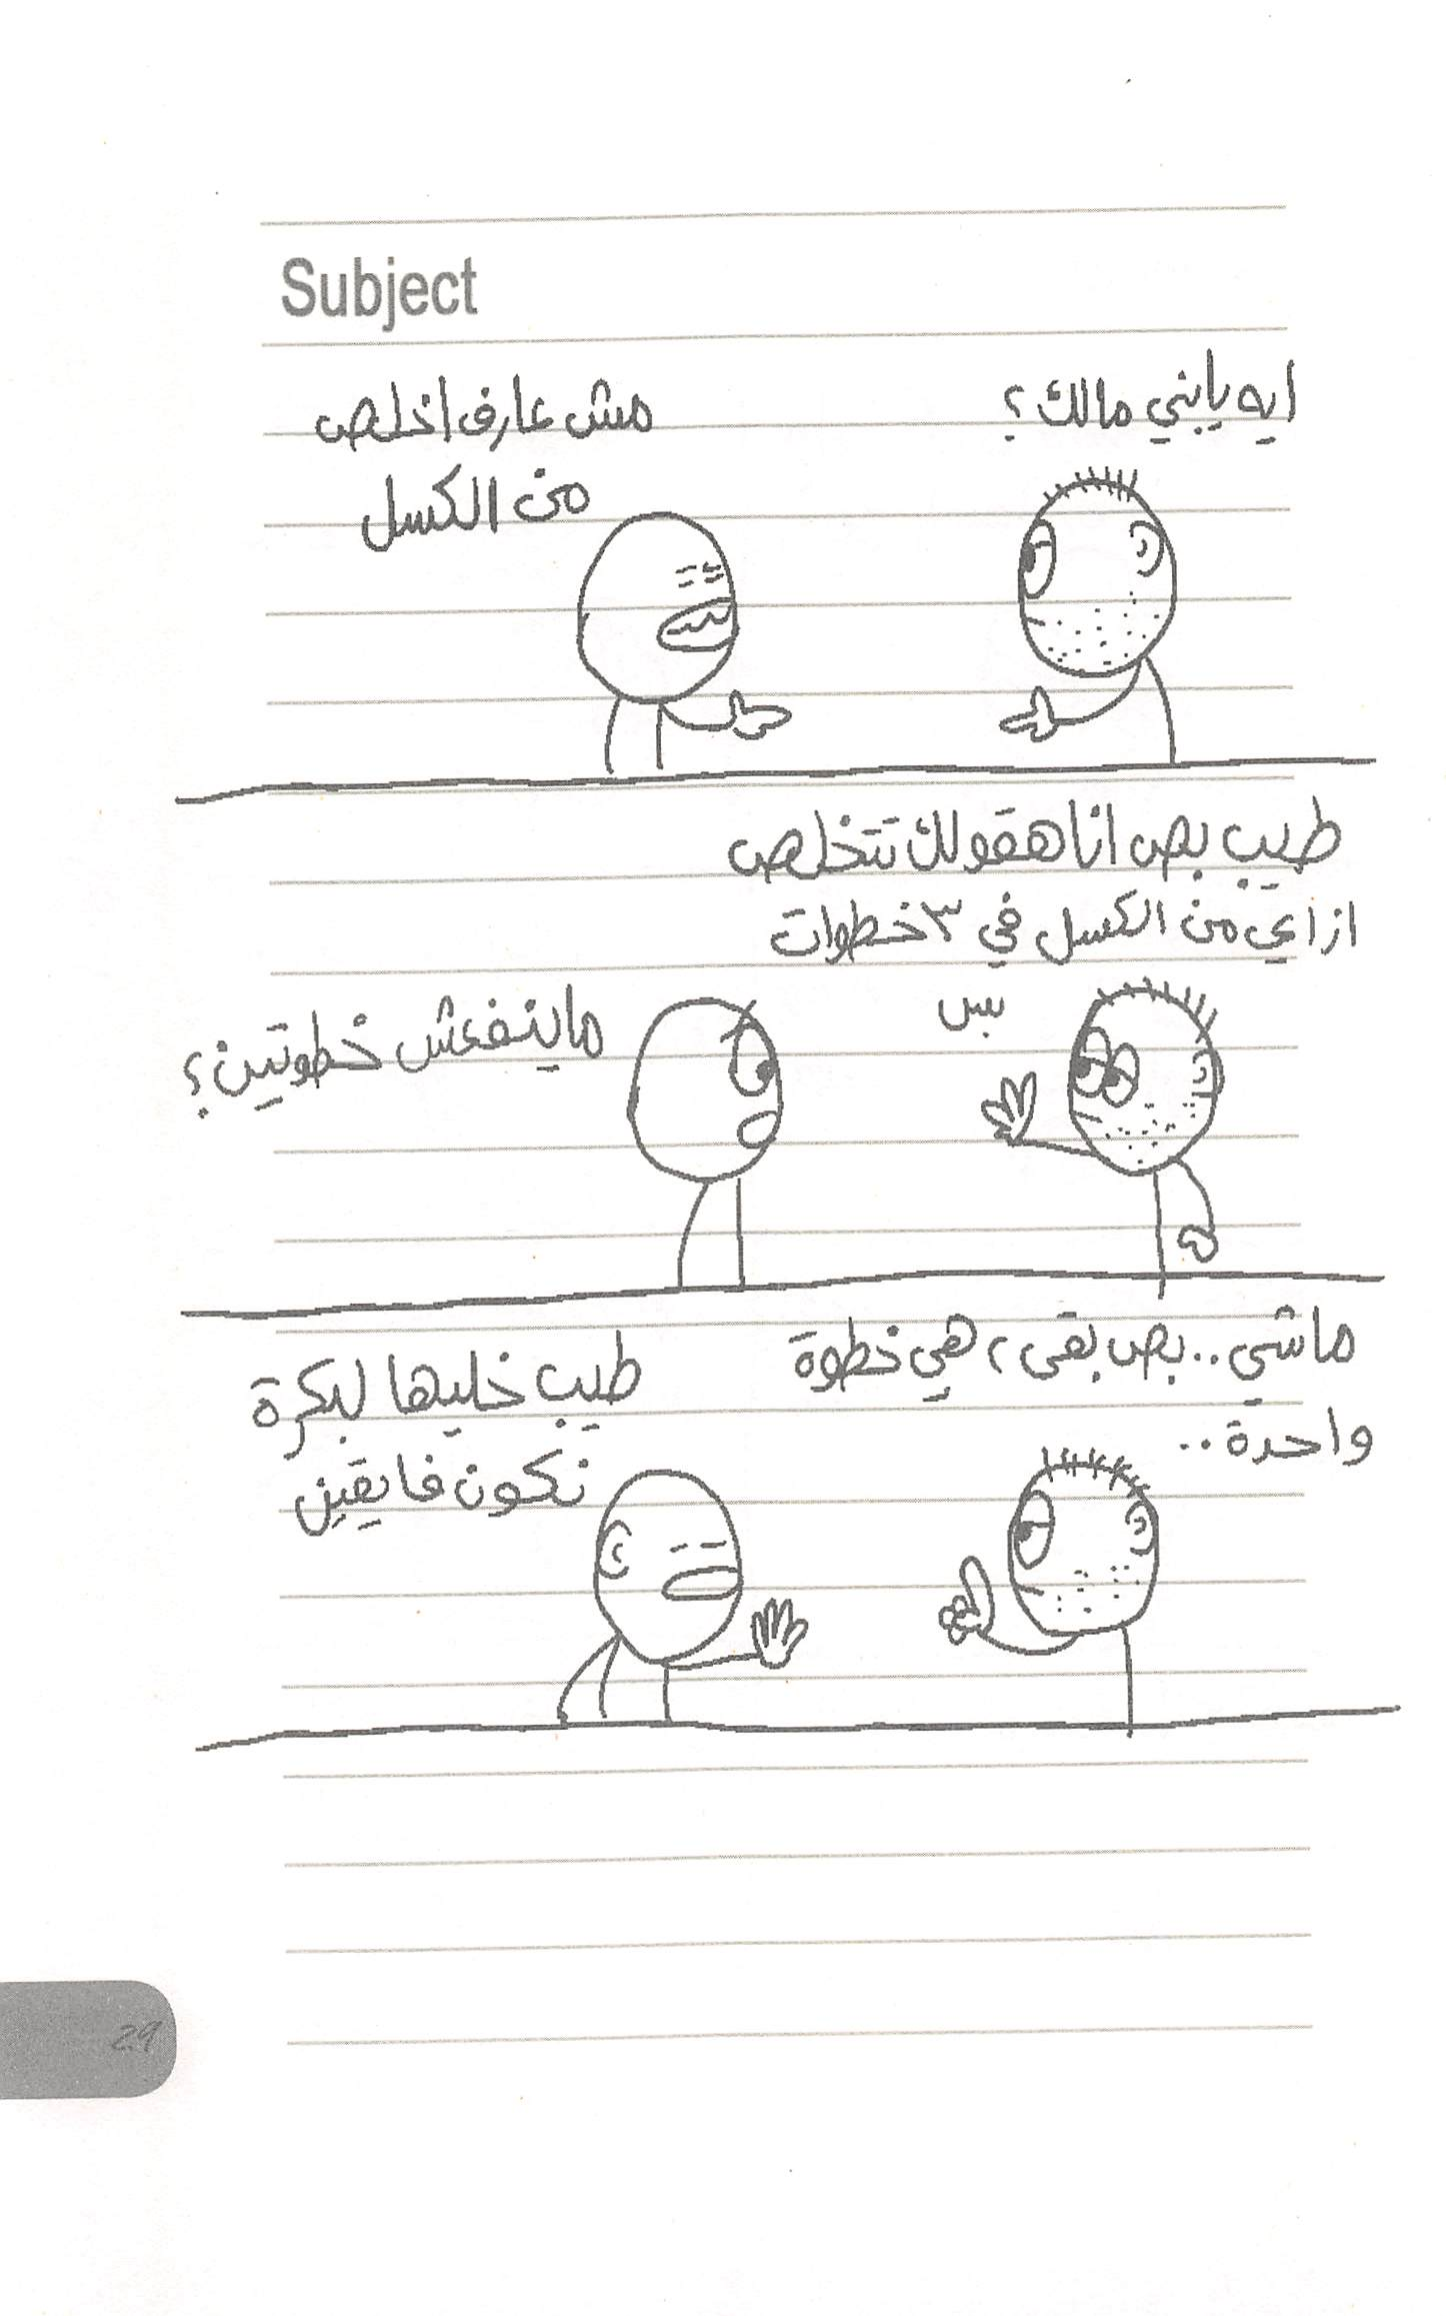 Subject
ايه يابني مالك؟
مش عارف اخلص
من الكسل
طيب بص انا هقولك تتخلص
ازاي من الكسل في ٣ خطوات
بس
ماينفعش خطوتين؟
ماشي.. بص بقى، هي خطوة
واحدة..
طيب خليها لبكرة
نكون فايقين
29